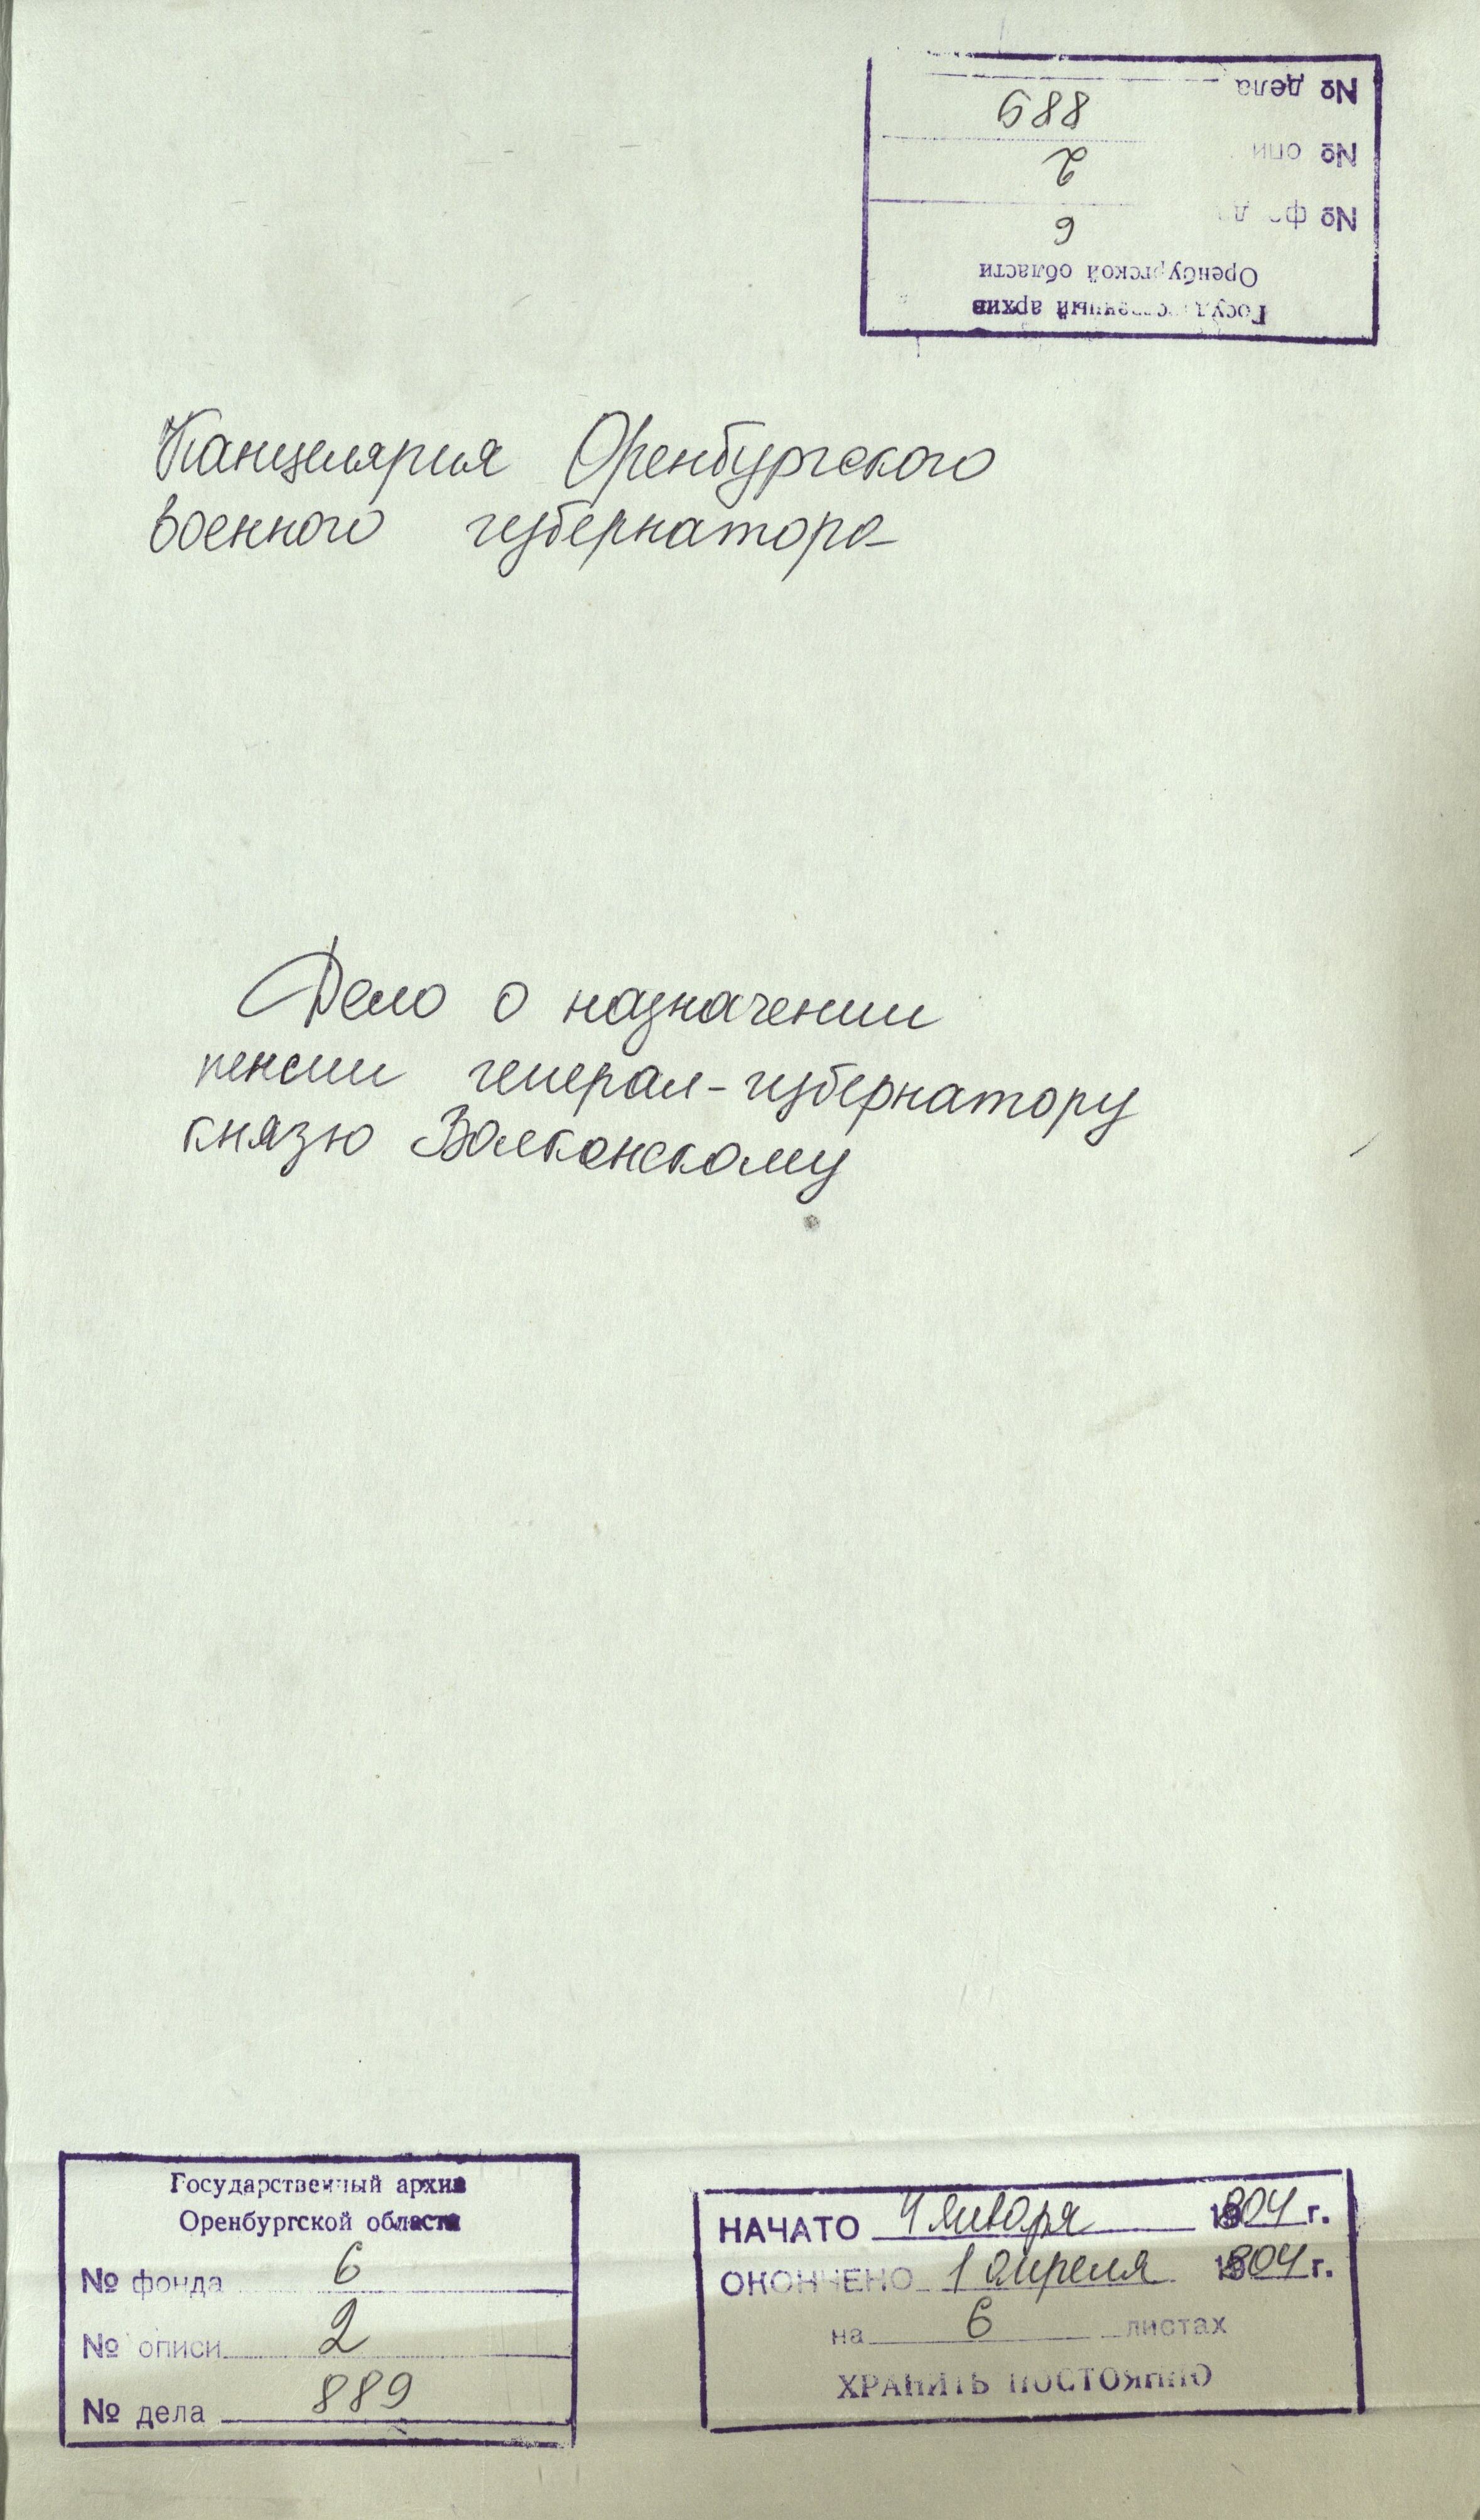 Государственный архив
Оренбургской области
№ фонда 6
№ описи 2
№ дела 889
Канцелярия Оренбургского
военного губернатора
Дело о назначении
пенсии генерал-губернатору
князю Волконскому
Государственный архив
Оренбургской области
№ фонда 6
№ описи 2
№ дела 889
НАЧАТО 4 января 1804 г.
ОКОНЧЕНО 1 апреля 1804 г.
на 6 листах
ХРАНИТЬ ПОСТОЯННО